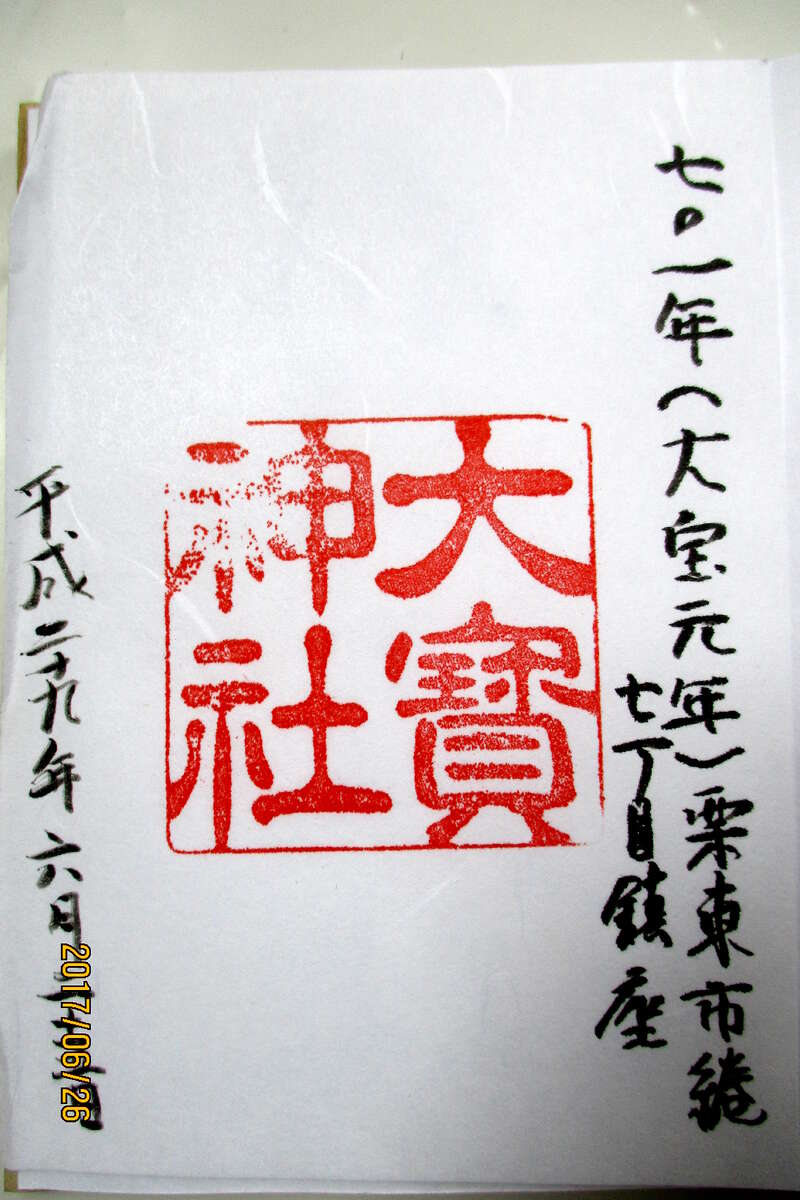 七〇一年(大宝元年)栗東市綣
七丁目鎮座
大寳
神社
平成二十九年六月二十六日
2017/06/26